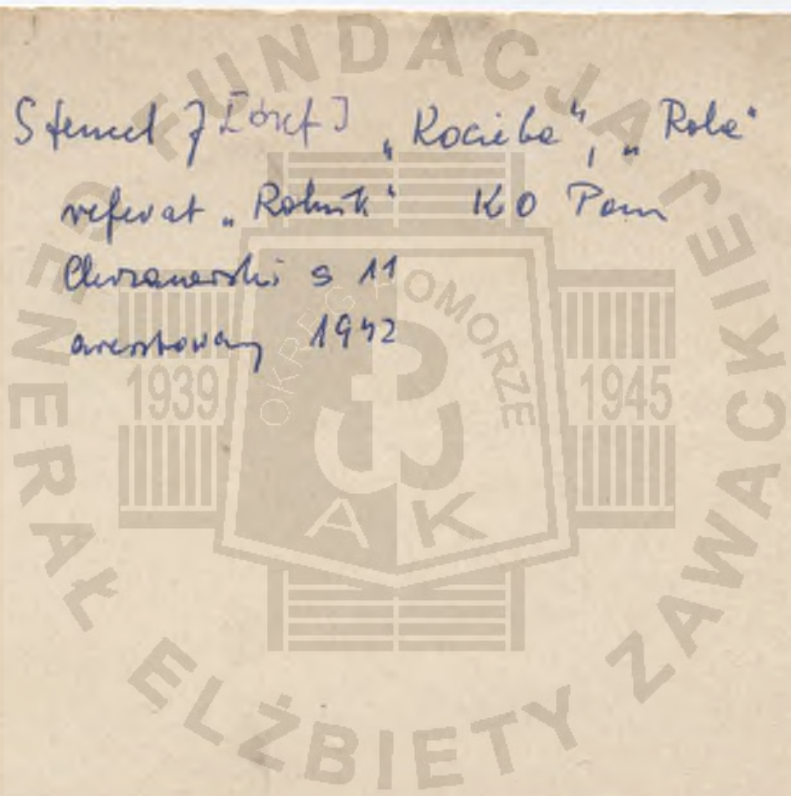 Stencel J [Józef] „Kociеba”, „Rola”
referat „Rolnik” KO Pom
Chrzanowski s 11
aresztowany 1942
FUNDACJA GENERAŁ ELŻBIETY ZAWACKIEJ
OKRĘG POMORZE
1939 1945
AK